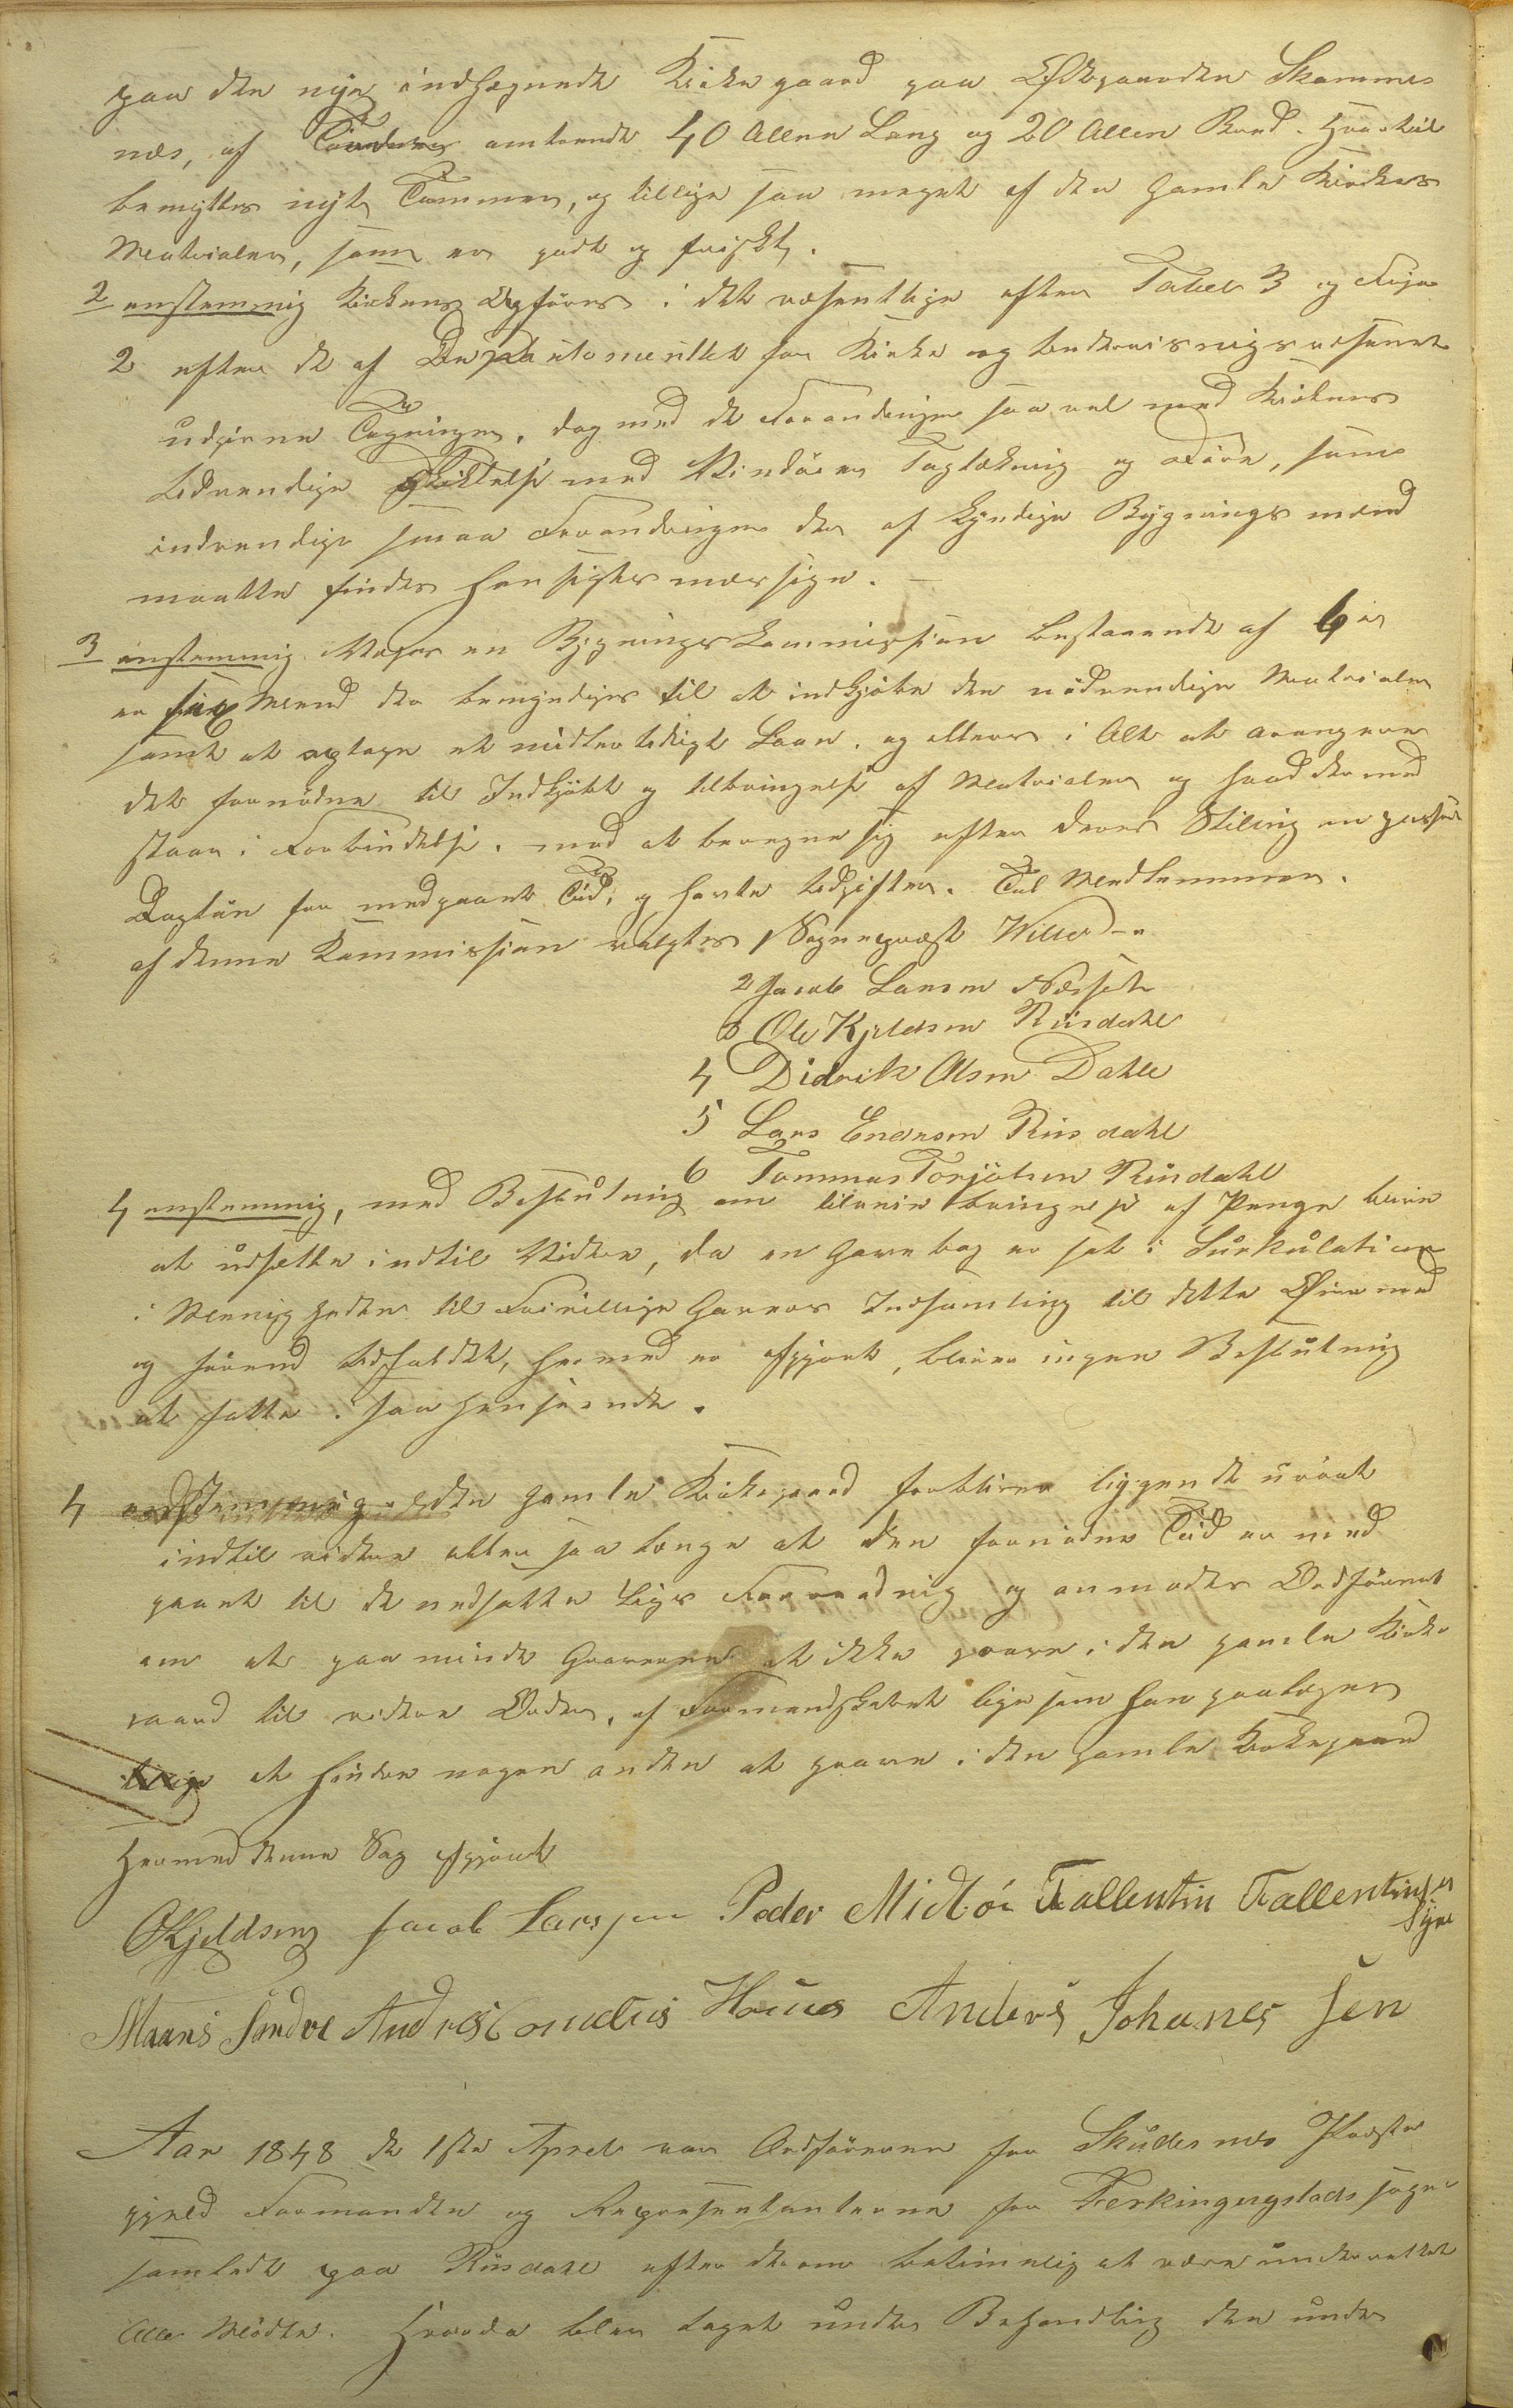 paa den nye indhægnede Kirkegaard paa Østgaarden Skamme
næs, af Tømmer omtrendt 40 Allen Lang og 20 Allen Bred. Hvortil
benyttes nyt Tømmer, og tillige saa meget af den Gamle Kirkes
Matrialer, som er godt og friskt.
2 enstemmig Kirkens Opføres i det væsentlige efter Tabel 3 og Figu
2 efter de af Departementet for Kirke og Undervisnigsvæsenet
udgivne Tegninger, dog med de Forandringer saavel med Kirkens
Udvendige Skikkelse med Vinduer Taglækning og Døre, som
indvendige smaa Forandringer der af kyndige Bygningsmænd
maatte findes hensigtsmæssige. —
3 enstemmig Vælges en Bygnings Kommission bestaaende af 6
er sex Mænd der bemyndiges til at indkjøbe den nødvendige Matrialer
samt at optage et midlertidigt Laan, og ellers i Alt at arangere
det fornødne til Indkjøbt og tilbringelse af Matrialer og hvad dermed
staar i Forbindelse. med at beregne sig efter deres Stilling en passende
Dagløn for medgaaet Tid, og havte Udgifter. Til Medlemmer
af denne Kommission valgtes 1 Sogneprest Willer
2 Jacob Larsen Nessett
3 Ole Kjeldsen Riisdahl
4 Didrik Olsen Dahle
5 Lars Endresen Riisdahl
6 Tommas Torjösen Riisdahl
4 enstemmig, med Beslutning om tilveiebringelse af Penge bliver
at udsette indtil Videre, da en Gavebog er sat i Surkulation
i Menigheden til Frivillige Gavers Indsamling til dette Øiemed
og førend Udfaldet, hermed er afgjort, bliver ingen Beslutnig
at fatte i saa henseende.
4 enstemmig den Gamle Kirkegaard forbliver liggende urørt
indtil videre eller saa længe at den fornødne Tid er med
gaaet til de nedsatte Ligs Forraadnig og anmodes Ordføreren
om at paaminde Graveren at ikke grave i den gamle Kirke
gaard til videre Ordre, af Formandskabet ligesom han paalegges
at hindre nogen anden at grave i den gamle Kirkegaard
Hermed denne Sag afgjort
OKjeldsen Jacob Larssen Peder Midböe Fallentin Fallentinsen
Syre
Maans Søndre Andreas Cornelius Houes Anders Johanessen
Aar 1848 de 1ste Apreli var Ordføreren for Skudesnes Preste
gjeld Formanden og Representanterne for Ferkingegstads sogn
samlede paa Riisdahl efter derom betimelig at være underrettet
Alle Mødte. Hvorda blev taget under Behandling den under